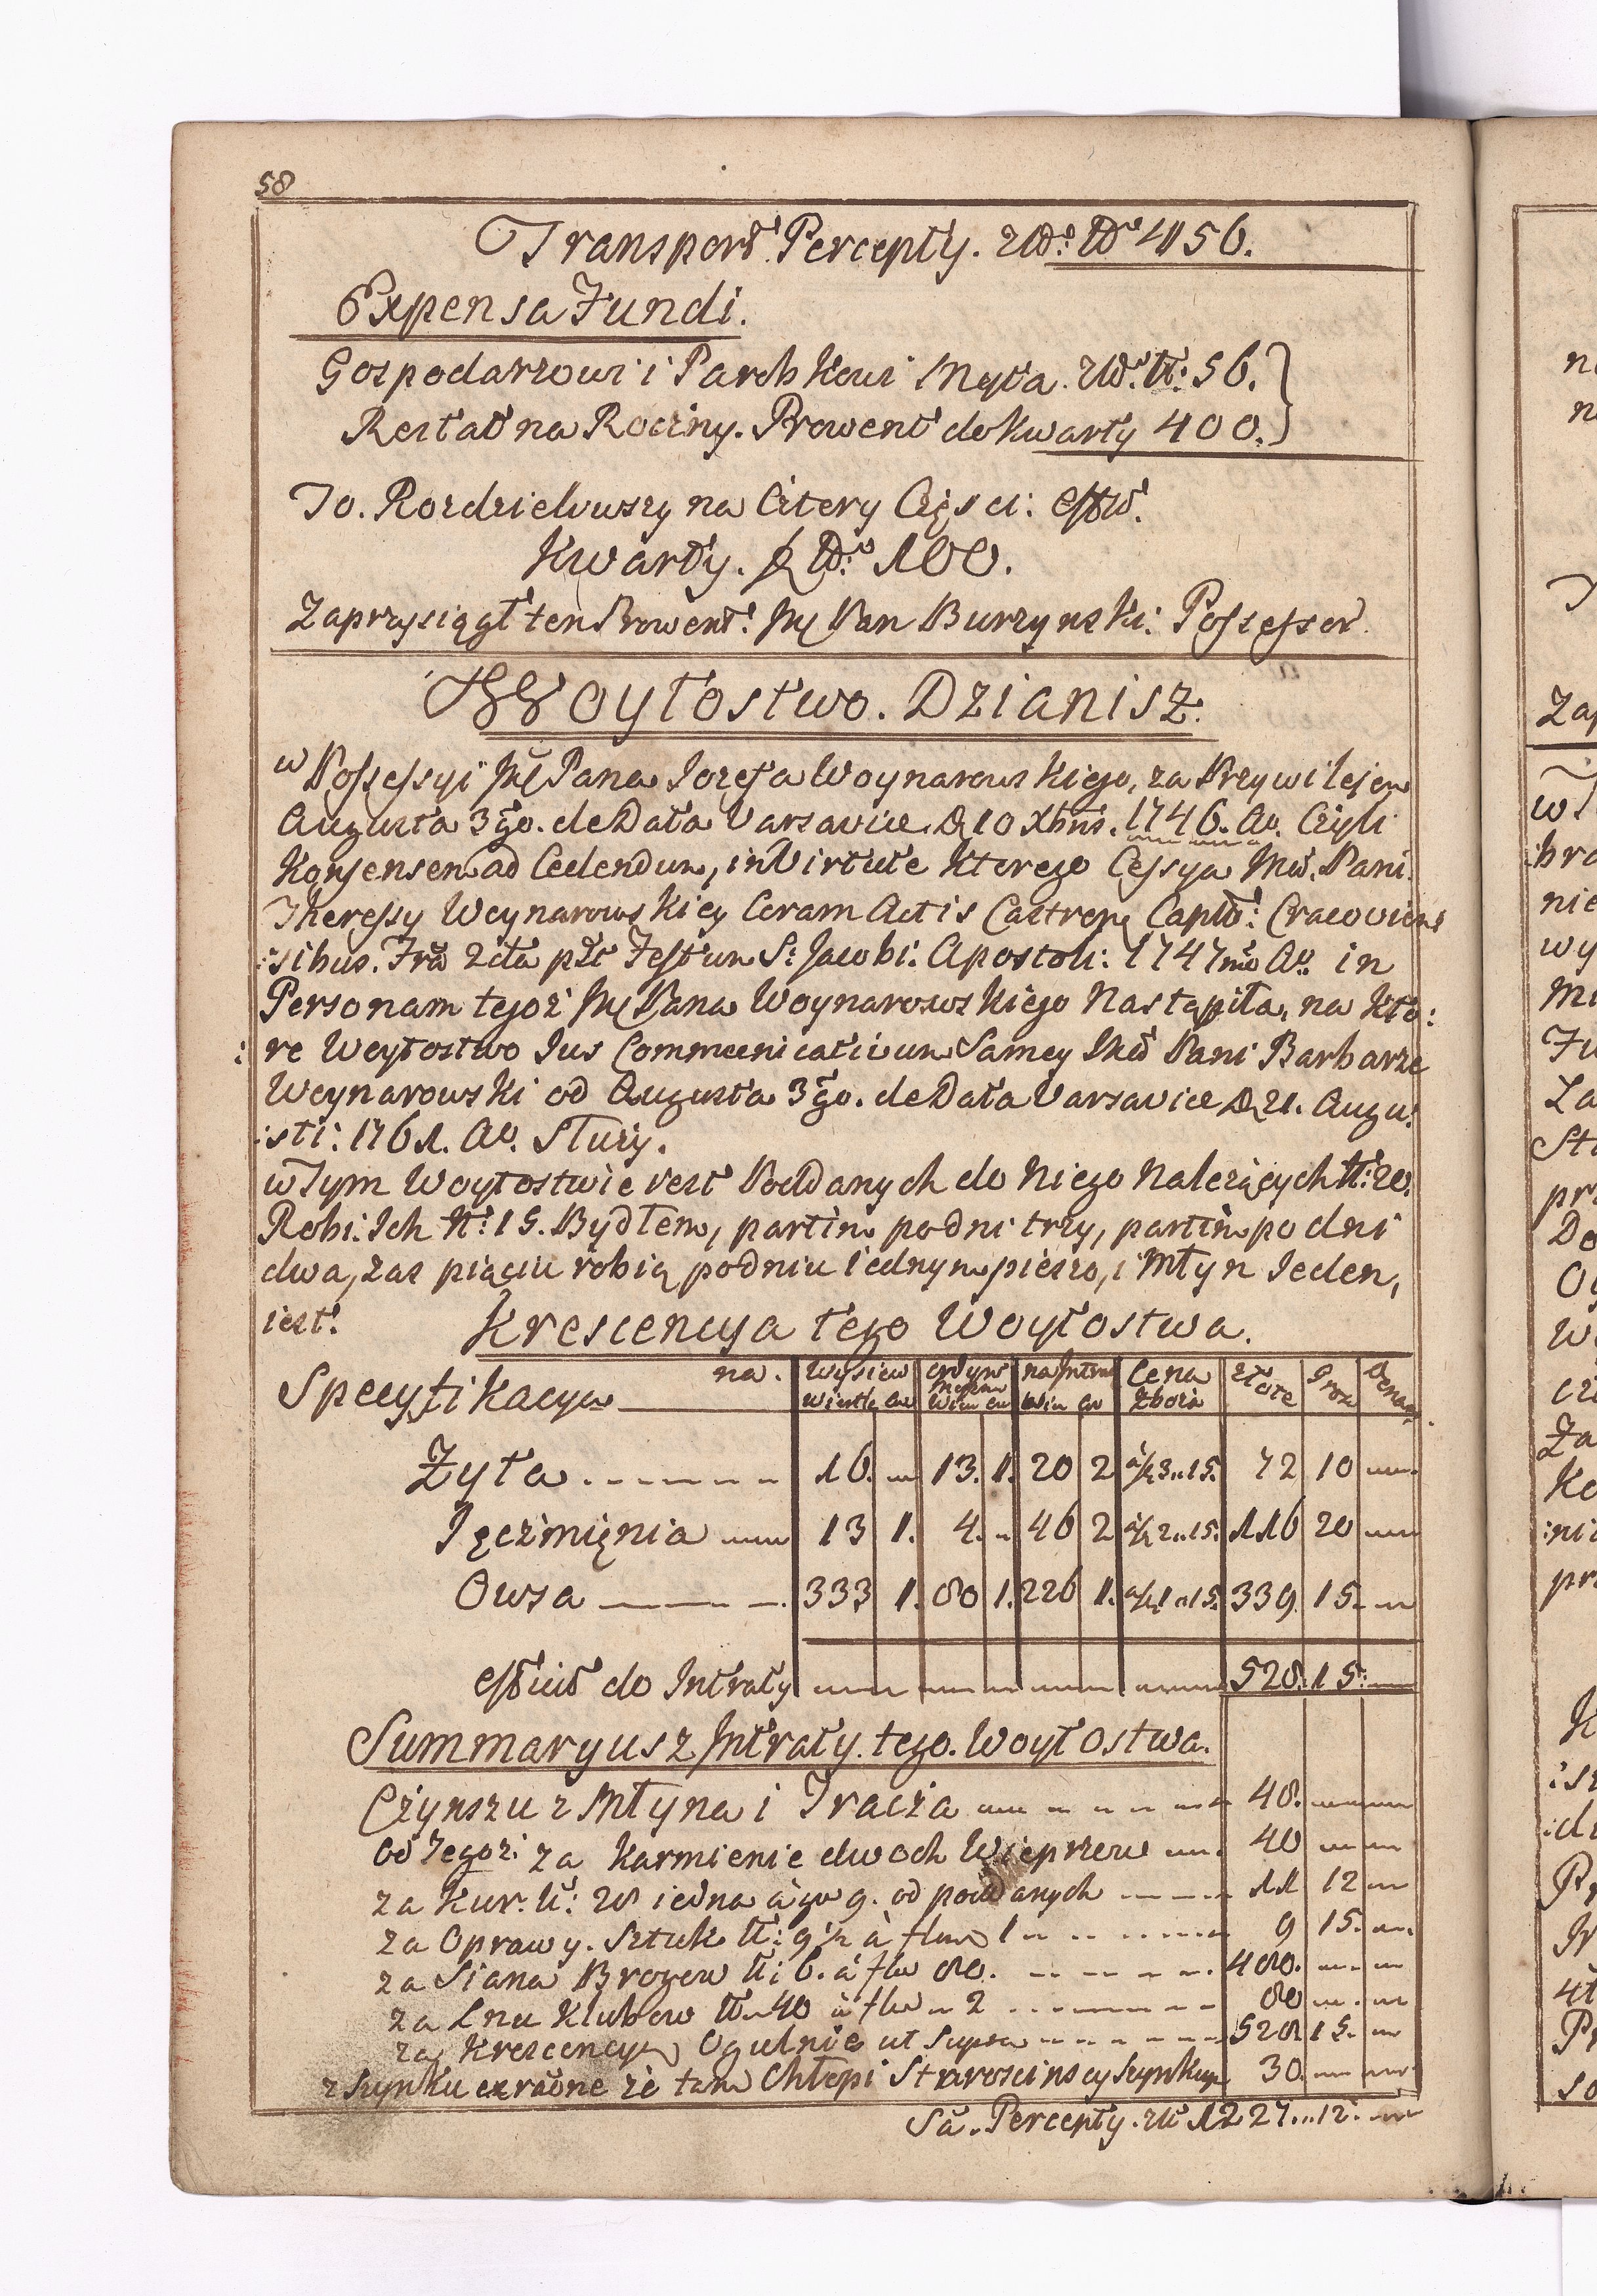 58
Transport Percepty. Zło: No 456.
Expensa Fundi.
Gospodarzowi i Parobkowi Myta. Zło: N: 56.
Restat na Roczny. Prowent do kwarty 400.
To. Rozdzieliwszy na Cztery Częsci: effit.
Kwarty. No 100.
Zaprzysiągł ten Prowent: JM Pan Burzynski: Possessor
Woytostwo. Dzianisz.
w Possessyi JM Pana Iozefa Woynarowskiego, za Przywilejem
Augusta 3go. de Data Varsaviae D 10 Xbris. 1746. Ao. Czyli
Konsensem ad Cedendum, in Virtute Ktorego Cessya Pani
Theressy Woynarowskiey Coram Actis Castren Capit: Cracovien
:sibus. Fra 2da pst Festum St Jacobi: Apostoli: 1747mo Ao. in
Personam tegoż JM Pana Woynarowskiego Nastąpiła, na Kto:
:re Woytostwo Ius Communicativum Samey Pani Barbarze
Woynarowski od Augusta 3go. de Data Varsaviae D 21. Augu:
:sti: 1761. Ao. Służy.
w Tym Woytostwie iest Poddanych do Niego Należących N: 20.
Robi. Ich N: 15. Bydłem, partim po dni trzy, partim po dni
dwa, zas piąciu robią po dniu iednym pieszo, i Młyn Ieden,
iest.
Krescencya tego Woytostwa.
Specyfikacya na. Wysiew Ordyn na Intra Cena Złote Grosz Denar
Wiertle Cw Wier Cw Wier Cw Zboża
Żyta 16. 13. 1. 20 2 à f 3..15. 72 10
Ięczmięnia 13 1. 4. 46 2 à f 2..15. 116 20
Owsa 333 1. 80 1. 226 1. à f 1..15. 339. 15.
effiuit do Intraty 528. 15.
Summaryusz Intraty. tego. Woytostwa.
Czynszu z Młyna i Tracża 48.
Od Tegoż. za Karmienie dwoch Wieprzow 40
za Kur. N: 28 iedna à gro 9. od poddanych 11 12
za Oprawy. Sztuk N: 9 1/2 à flor 1 9 15.
za Siana Brogow N: 6. à flo 80. 480.
za Lnu Klubow No 40 à flo 2 80
za Krescencyą Ogulnie ut Supra 528 15.
z Szynku że tam Chłopi Staroscinscy Szynkuią 30
Sa. Percepty. Zło 1227...12.